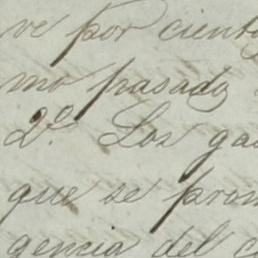 ve por ciento
mo pasado
2º Los gas
que se prom
gencia del c